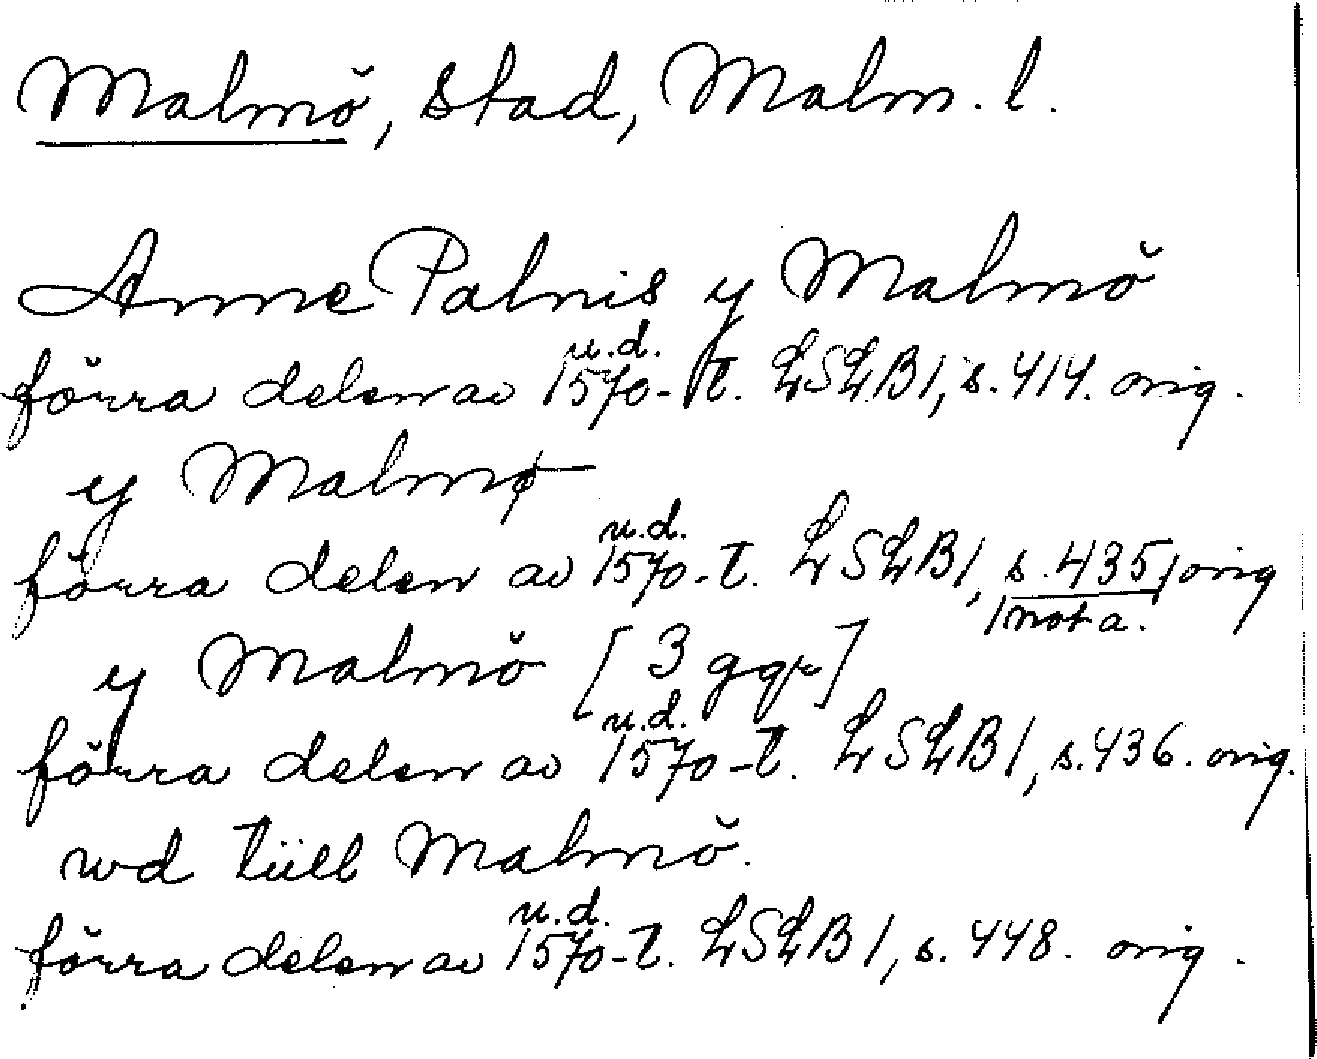 Malmö, stad, Malm. l.
Anne Palnis y Malmö
förra delen av 1570-t. u.d. LSLB 1, s. 414. orig.
y Malmø
förra delen av 1570-t. u.d. LSLB 1, s. 435, orig
1 nota.
y Malmö [3 ggr]
förra delen av 1570-t. u.d. LSLB 1, s. 436. orig.
wd tiill Malmö.
förra delen av 1570-t. u.d. LSLB 1, s. 448. orig.